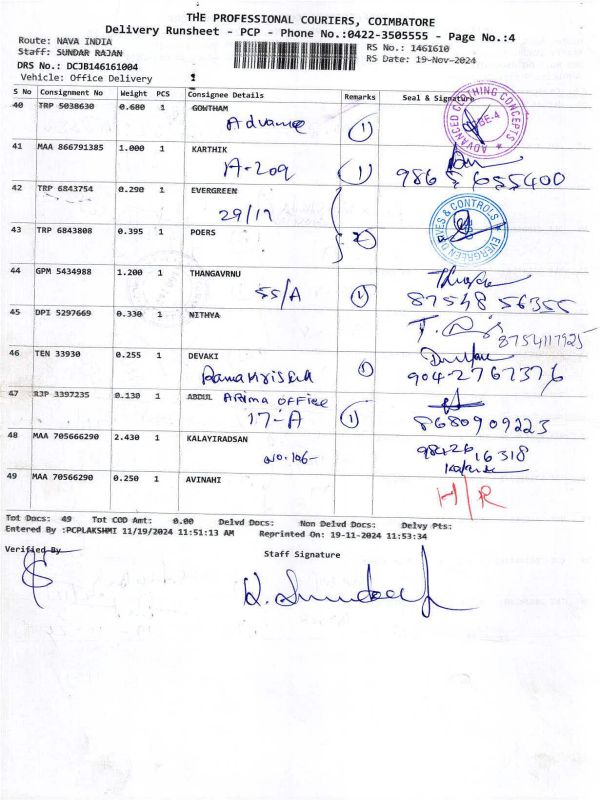 THE PROFESSIONAL COURIERS, COIMBATORE
Delivery Runsheet - PCP - Phone No.:0422-3505555 - Page No.:4
Route: NAVA INDIA RS No.: 1461610
Staff: SUNDAR RAJAN RS Date: 19-Nov-2024
DRS No.: DCJB146161004
Vehicle: Office Delivery 1
S No Consignment No Weight PCS Consignee Details Remarks Seal & Signature
40 TRP 5038630 0.680 1 GOWTHAM
Advance 1
ADVANCED CLOTHING CONCEPTS
41 MAA 866791385 1.000 1 KARTHIK
A-209 1
42 TRP 6843754 0.290 1 EVERGREEN
29/17
EVERGREEN DRIVES & CONTROLS
43 TRP 6843808 0.395 1 POERS
2
44 GPM 5434988 1.200 1 THANGAVRNU
55/A 1 87548 56355
45 DPI 5297669 0.330 1 NITHYA
8754117925
46 TEN 33930 0.255 1 DEVAKI
1 904-2767376
47 RJP 3397235 0.130 1 ABDUL ARIMA OFFICE
17-A 1 8680909223
48 MAA 705666290 2.430 1 KALAYIRADSAN
NO.106- 98426 16318
49 MAA 70566290 0.250 1 AVINAHI
H/R
Tot Docs: 49 Tot COD Amt: 0.00 Delvd Docs: Non Delvd Docs: Delvy Pts:
Entered By :PCPLAKSHMI 11/19/2024 11:51:13 AM Reprinted On: 19-11-2024 11:53:34
Verified By Staff Signature